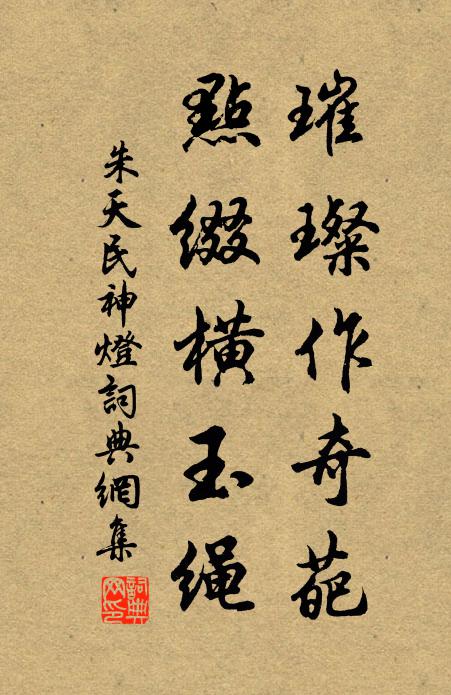 璀璨作奇葩
點綴橫玉绳
朱天民神燈詞典網集
詞典网印